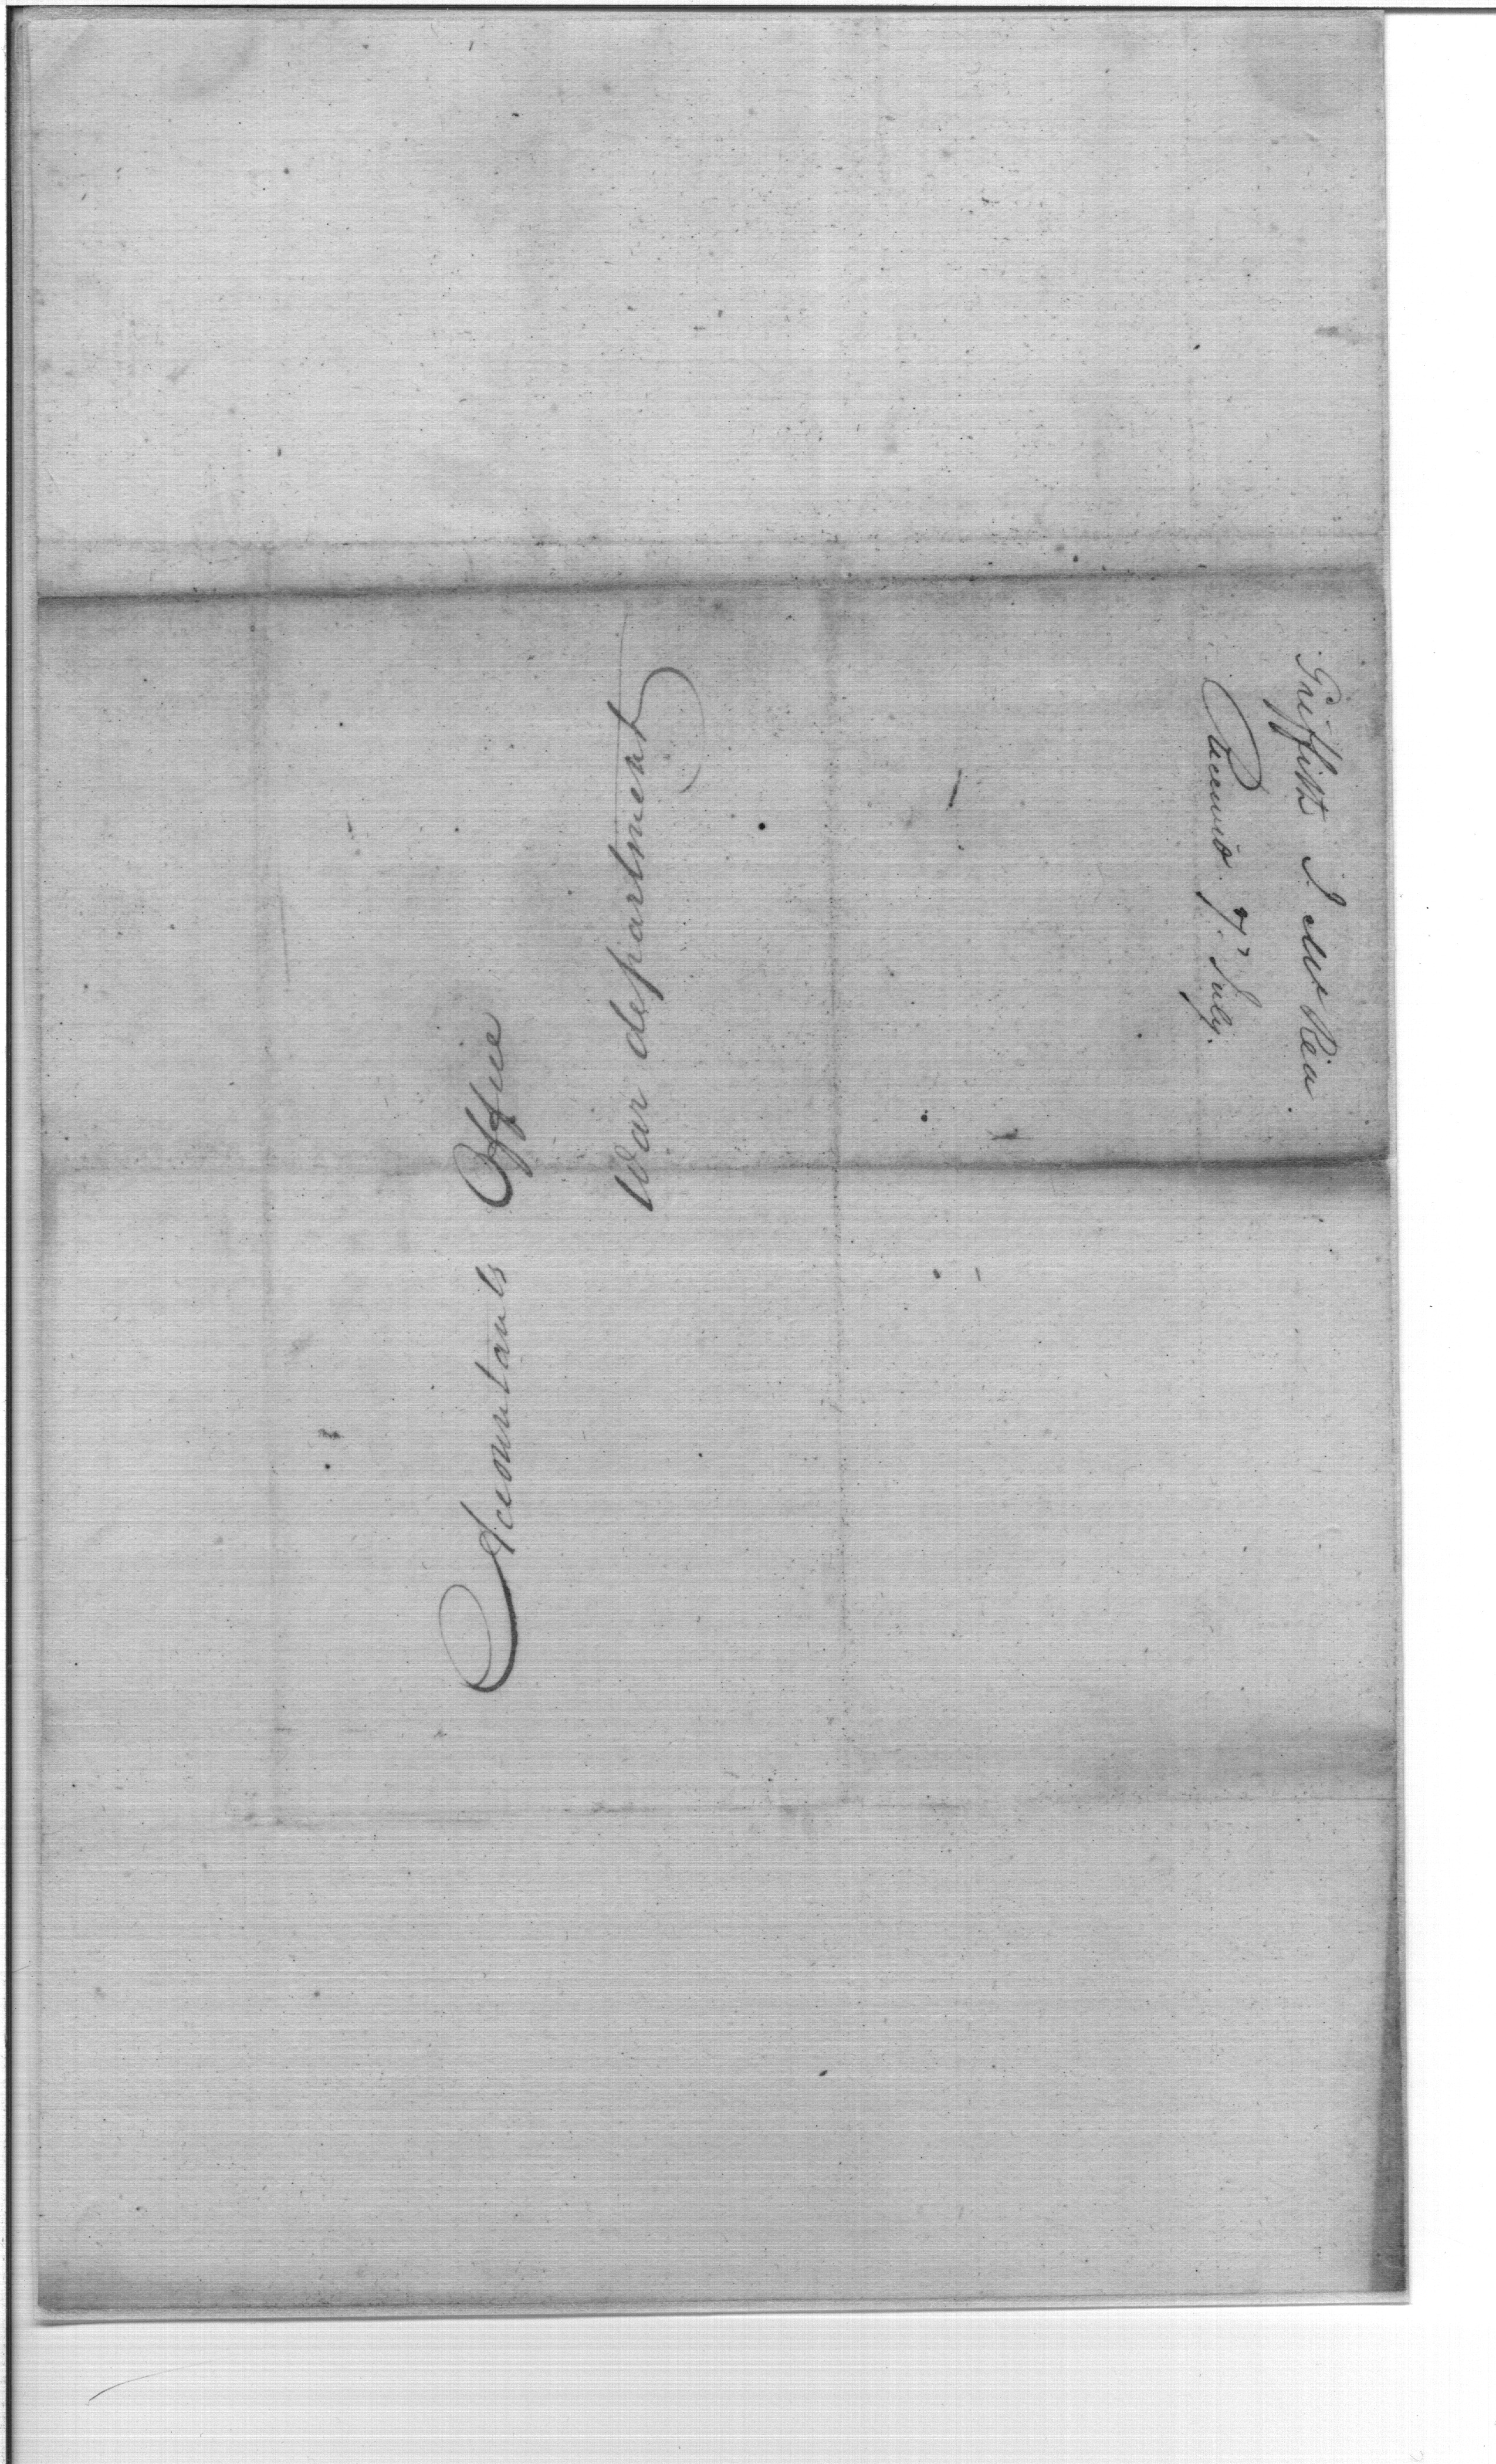 Accountants Office
War department
Griffith J. McRea
Received 7th July.